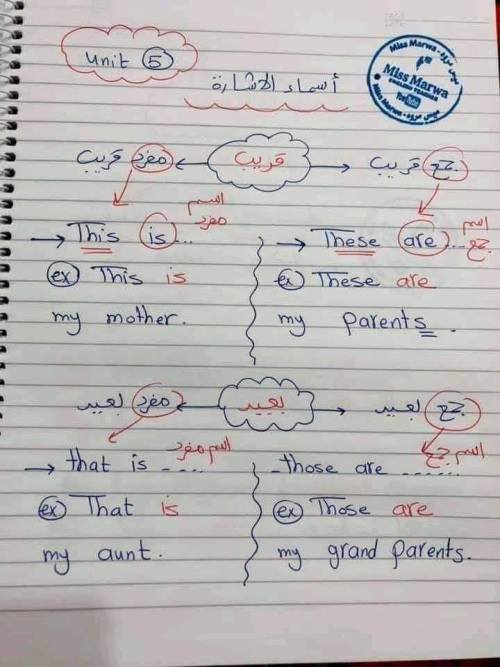 Unit 5
أسماء الاشارة
Miss Marwa - ميس مروه
Miss Marwa
ENGLISH TEACHER
YouTube
Miss Marwa - ميس مروه
قريب
مفرد قريب
جمع قريب
This is ... اسم مفرد
ex This is
my mother.
These are ... اسم جمع
ex These are
my parents.
بعيد
مفرد بعيد
جمع بعيد
that is ..... اسم مفرد
ex That is
my aunt.
those are ...... اسم جمع
ex Those are
my grand parents.